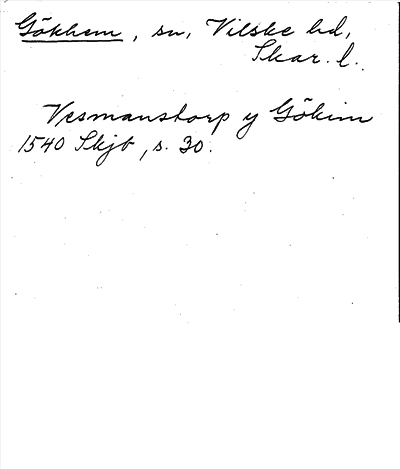 Gökhem, sn, Vilske hd,
Skar. l.
Vesmanstorp y Gökim
1540 Skjb, s. 30.